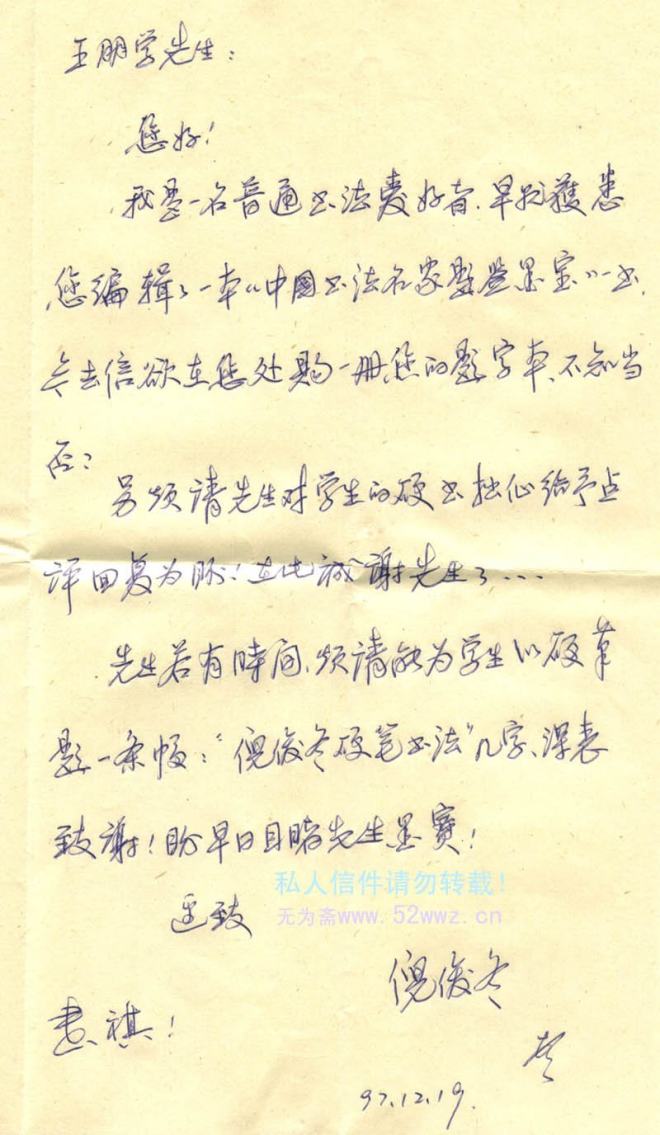 王朋学先生：
您好！
我是一名普通书法爱好者.早期獲悉
您编辑了一本《中國书法名家题签墨宝》一书,
今去信欲在您处购一册您的题字本、不知当
否？
另烦请先生对学生的硬书拙作给予点
评回复为盼！在此诚谢先生了...
先生若有時间、烦请能为学生以硬笔
题一条幅：“倪俊冬硬笔书法”几字、深表
致谢！盼早日目睹先生墨寶！
私人信件请勿转载！
无为斋www.52wwz.cn
此致
倪俊冬
祺！
97.12.19.